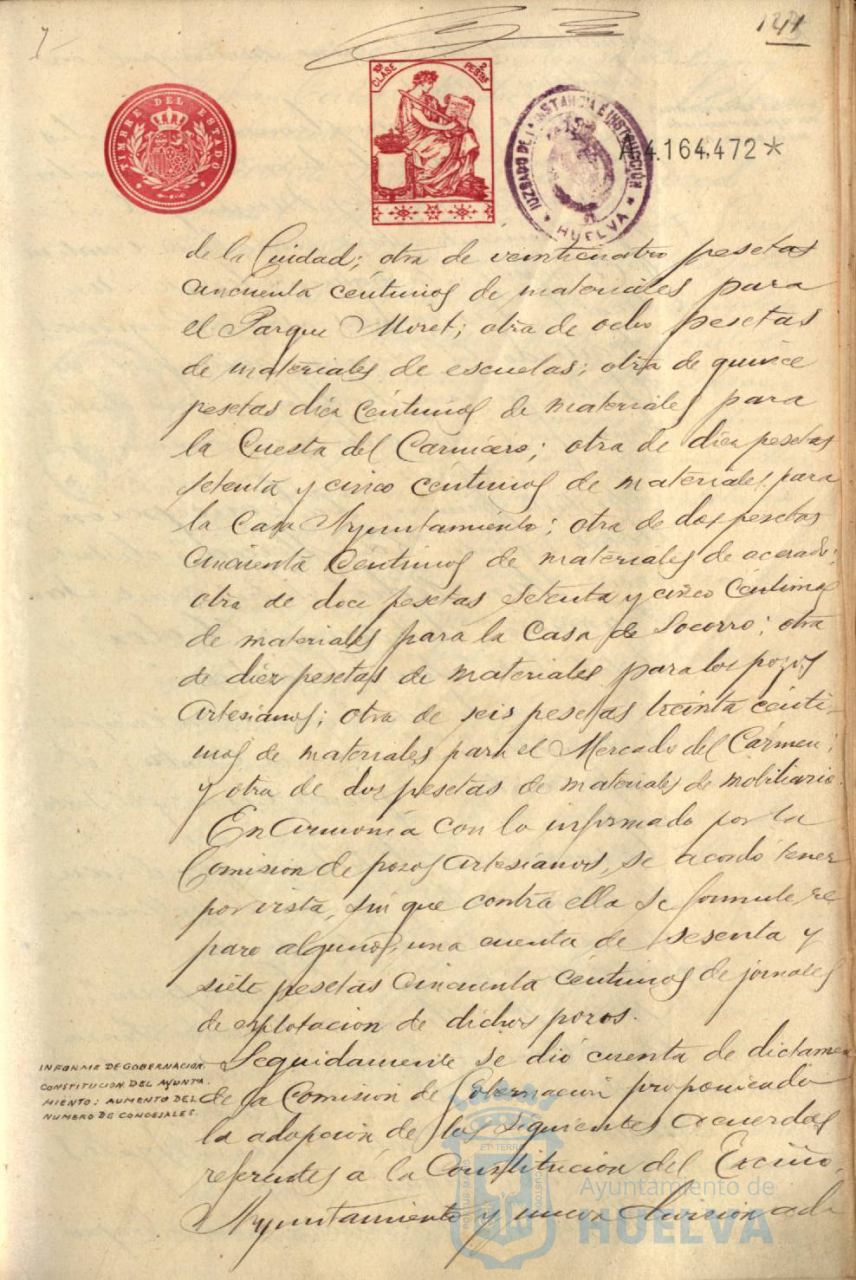 141
TIMBRE DEL ESTADO
10ª CLASE
2 PESETAS
JUZGADO DE 1ª INSTANCIA E INSTRUCCIÓN
* HUELVA *
A.4.164,472*
de la Ciudad; otra de veinticuatro pesetas
cincuenta céntimos de materiales para
el Parque Moret; otra de ocho pesetas
de materiales de escuelas; otra de quince
pesetas diez céntimos de materiales para
la Cuesta del Carnicero; otra de diez pesetas
setenta y cinco céntimos de materiales para
la Casa Ayuntamiento; otra de dos pesetas
cincuenta céntimos de materiales de acerado;
otra de doce pesetas setenta y cinco céntimos
de materiales para la Casa de Socorro; otra
de diez pesetas de materiales para los pozos
Artesianos; otra de seis pesetas treinta cénti-
mos de materiales para el Mercado del Cármen;
y otra de dos pesetas de materiales de mobiliario.
En armonía con lo informado por la
Comision de pozos Artesianos, se acordó tener
por vista, sin que contra ella se formule re
paro alguno, una cuenta de sesenta y
siete pesetas cincuenta céntimos de jornales
de esplotacion de dichos pozos.
INFORME DE GOBERNACION.
CONSTITUCION DEL AYUNTA.
MIENTO: AUMENTO DEL
NUMERO DE CONCEJALES.
Seguidamente se dió cuenta de dictamen
de la Comision de Gobernacion proponiendo
la adopcion de los siguientes acuerdos
referentes á la Constitucion del Excmo.
Ayuntamiento y nueva division ad
Ayuntamiento de
HUELVA